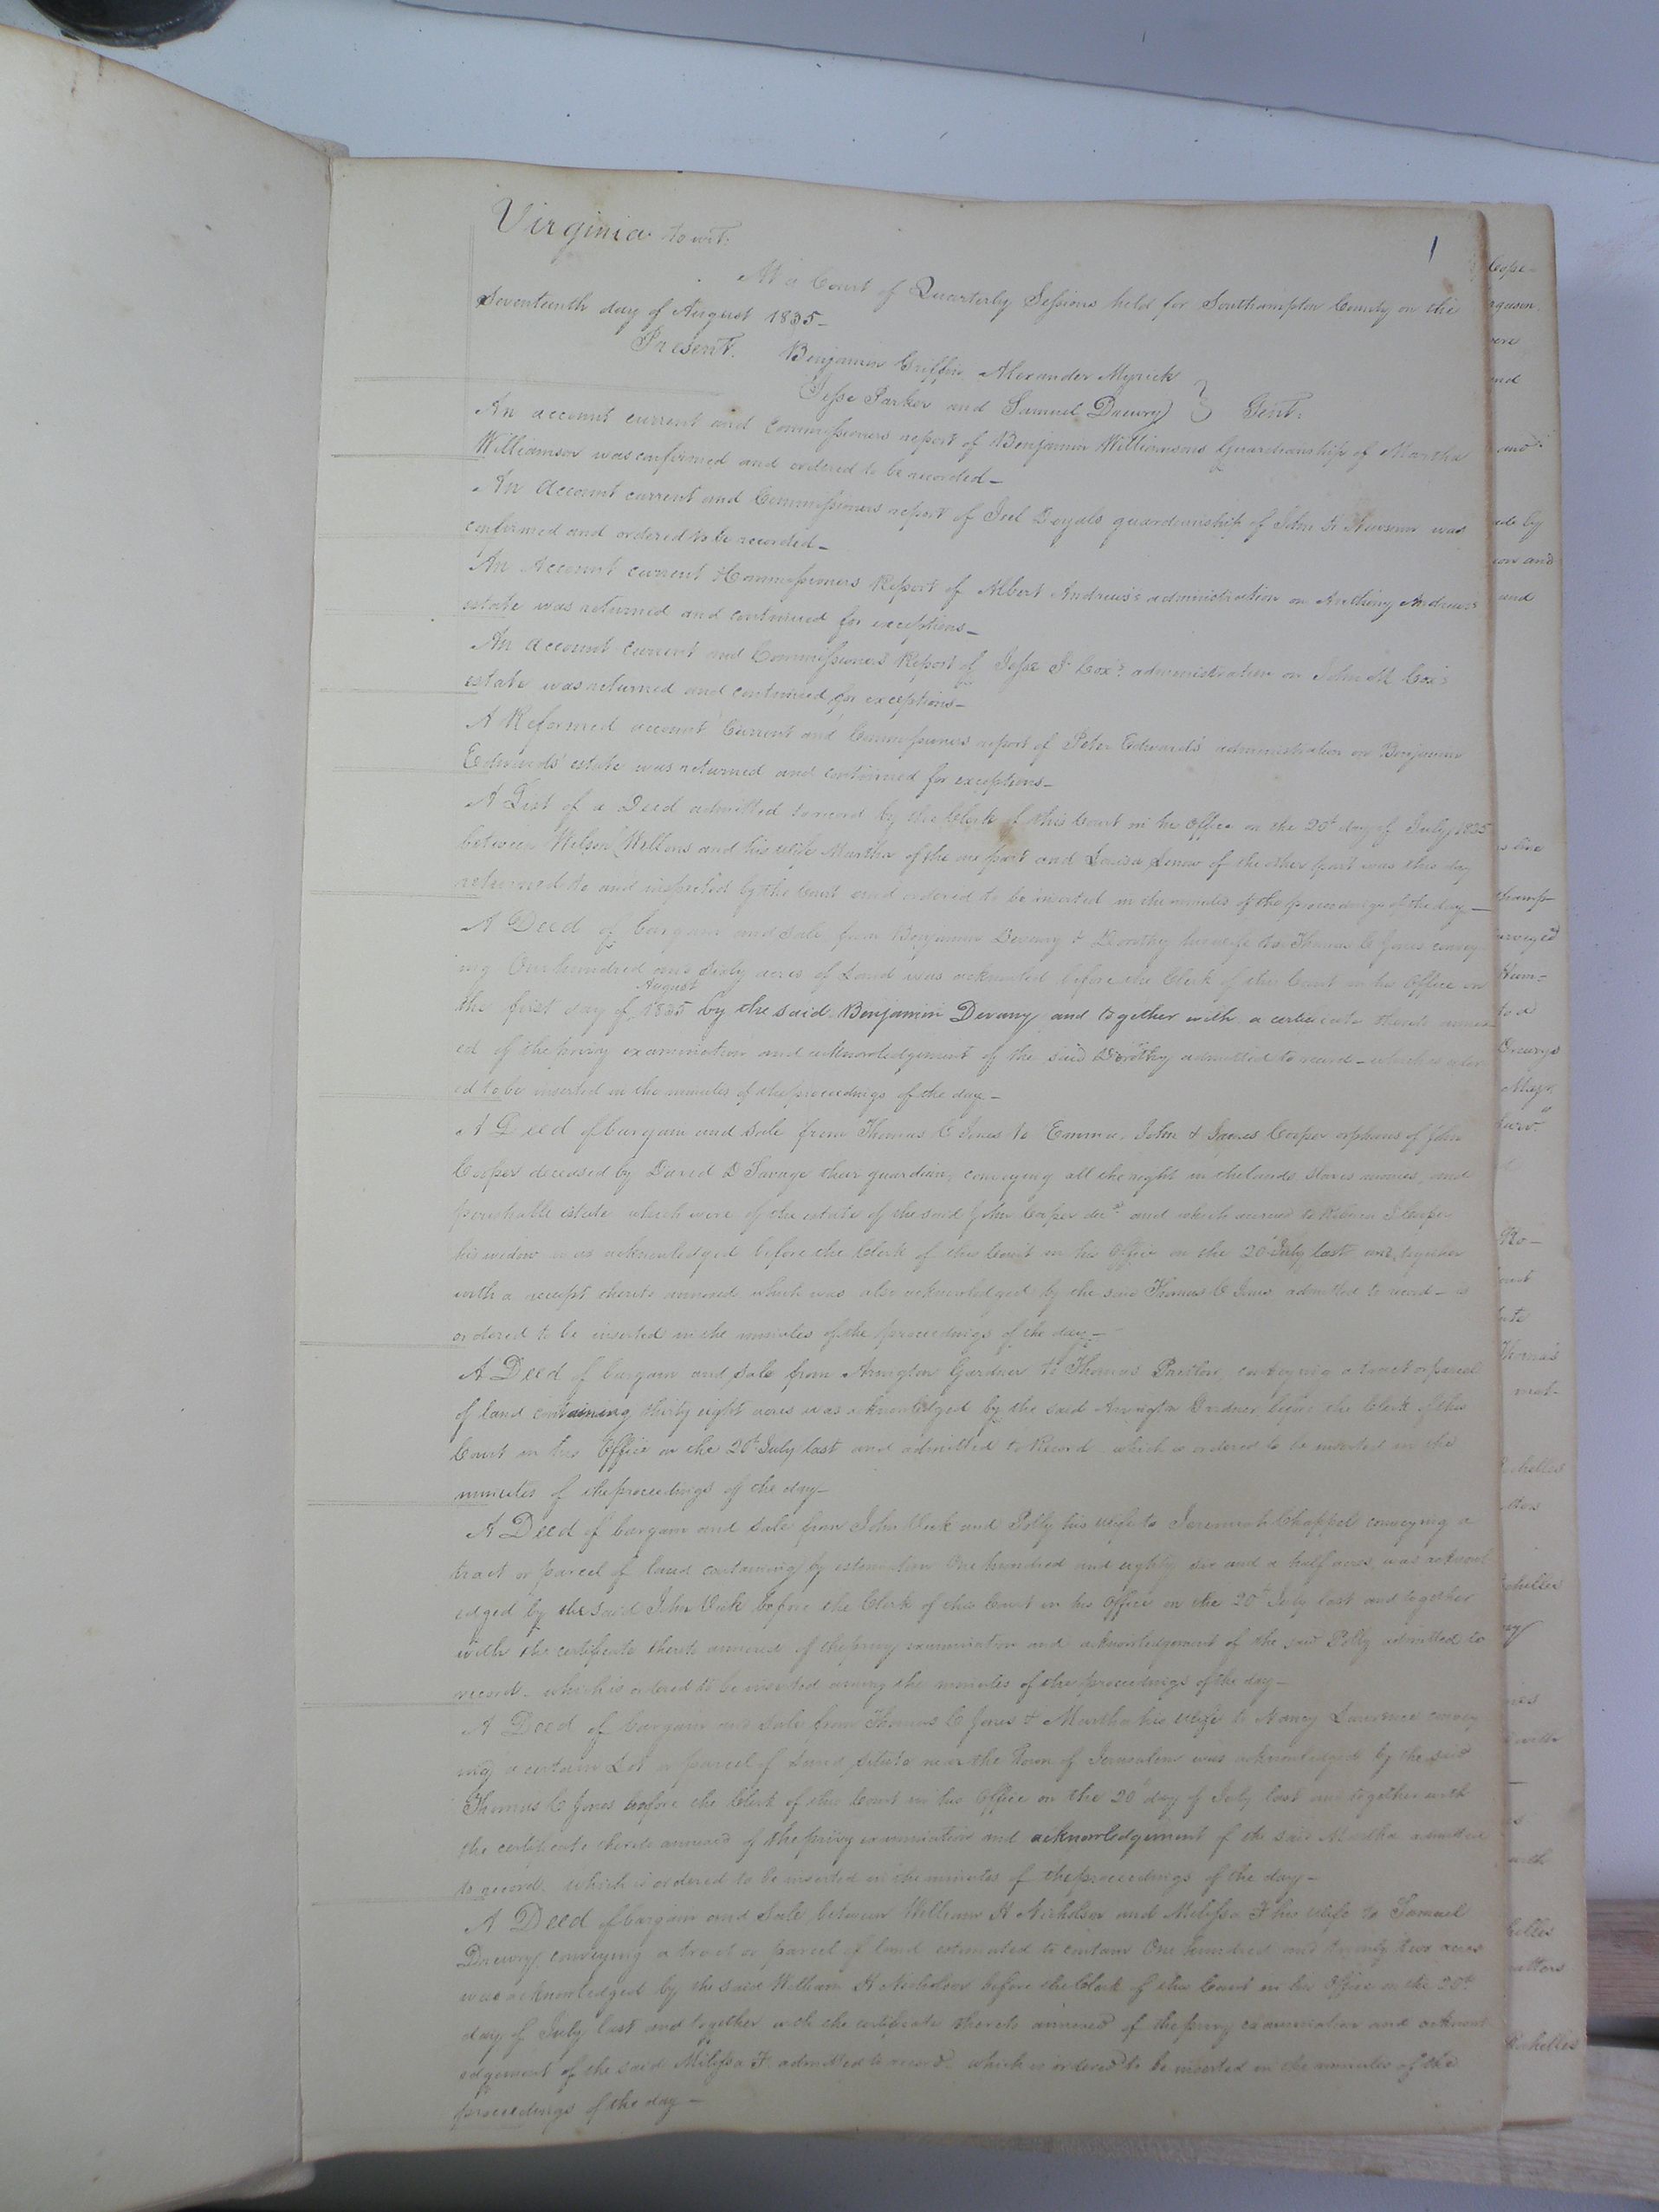 1
Virginia to wit.
At a Court of Quarterly Sessions held for Southampton County on the
Seventeenth day of August 1835–
Present. Benjamin Griffin Alexander Myrick
Jesse Parker and Samuel Drewry } Gent.
An account current and Commissioners report of Benjamin Williamsons Guardianship of Martha
Williamson was confirmed and ordered to be recorded–
An Account current and Commissioners report of Joel guardianship of John was
confirmed and ordered to be recorded–
An Account current & Commissioners Report of Albert Andrews's administration on Anthony Andrews
estate was returned and continued for exceptions–
An account current and Commissioners Report of Jesse S Cox's administration on John M Cox's
estate was returned and continued for exceptions–
A Reformed account Current and Commissioners report of Peter Edwards administration on Benjamin
Edwards' estate was returned and continued for exceptions–
A List of a Deed admitted to record by the Clerk of this Court in he Office on the 20th day of July 1835
between and his wife Martha of the one part and Louisa of the other part was this day
returned to and inspected by the Court and ordered to be inserted in the minutes of the proceedings of the day–
A Deed of bargain and sale from Benjamin Devany & Dorothy his wife to Thomas C Jones convey-
ing One hundred and sixty acres of Land was before the Clerk of this Court in his Office on
the first day of August 1835 by the said Benjamin Devany and together with a certificate thereto annex-
ed of the privy examination and acknowledgement of the said Dorothy admitted to record – which is order
ed to be inserted in the minutes of the proceedings of the day–
A Deed of bargain and sale from Thomas C Jones to Emma, John & James Cooper orphans of John
Cooper deceased by David D Savage their guardian, conveying all the right in the lands slaves monies, and
perishable estate which were of the estate of the said John Cooper decd and which to Rebecca S Cooper
his widow was acknowledged before the Clerk of this Court in his Office on the 20 July last and together
with a receipt thereto annexed which was also acknowledged by the said Thomas C Jones admitted to record – is
ordered to be inserted in the minutes of the proceedings of the day–
A Deed of bargain and sale from Arrington Gardner to Thomas conveying a tract or parcel
of land containing thirty eight acres was acknowledged by the said Arrington Gardner before the Clerk of this
Court in his Office on the 20th July last and admitted to Record which is ordered to be inserted in the
minutes of the proceedings of the day–
A Deed of bargain and sale from John Vick and Polly his wife to Jeremiah Chappel conveying a
tract or parcel of land containing by estimation One hundred and eighty six and a half acres was acknowl
edged by the said John Vick before the Clerk of this Court in his Office on the 20th July last and together
with the certificate thereto annexed of the privy examination and acknowledgement of the said Polly admitted to
record – which is ordered to be inserted among the minutes of the proceedings of the day–
A Deed of bargain and sale from Thomas C Jones & Martha his wife to Nancy Lawrence convey
ing a certain Lot or parcel of Land situate near the Town of Jerusalem was acknowledged by the said
Thomas C Jones before the Clerk of this Court in his Office on the 20 day of July last and together with
the certificate thereto annexed of the privy examination and acknowledgement of the said Martha admitted
to record. which is ordered to be inserted in the minutes of the proceedings of the day–
A Deed of bargain and Sale between William H Nicholson and Melissa F his wife to Samuel
Drewry conveying a tract or parcel of land estimated to contain One hundred and twenty two acres
was acknowledged by the said William H Nicholson before the Clerk of this Court in his Office on the 20th
day of July last and together with the certificate thereto annexed of the privy examination and acknowl
edgement of the said Melissa F. admitted to record which is ordered to be inserted in the minutes of the
proceedings of the day–